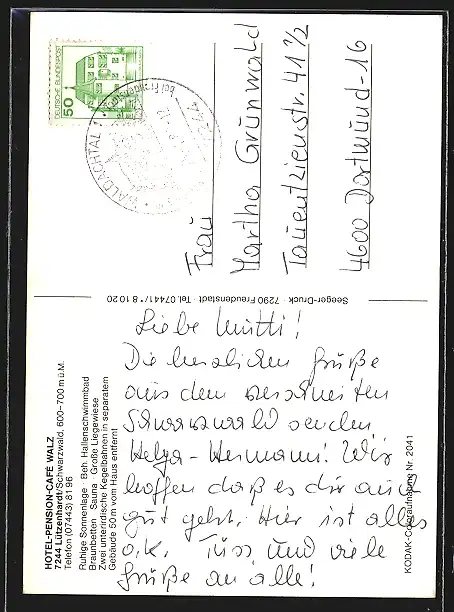 HOTEL-PENSION-CAFÉ WALZ
7244 Lützenhardt/Schwarzwald, 600–700 m ü.M.
Telefon (07443) 81 96
Ruhige Sonnenlage Beh. Hallenschwimmbad
Braunbetten Sauna Große Liegewiese
Zwei unterirdische Kegelbahnen in separatem
Gebäude 50 m vom Haus entfernt
Liebe Mutti!
Die herzlichen Grüße
aus dem verschneiten
Schwarzwald senden
Helga - Hermann! Wir
hoffen daß es dir auch
gut geht. Hier ist alles
o.k. Tüss und viele
Grüße an alle!
KODAK-Coloraufnahme Nr. 2041
Seeger-Druck · 7290 Freudenstadt · Tel. 07441/*8 10 20
DEUTSCHE BUNDESPOST
50
WALDACHTAL 1
bei Freudenstadt
7244
Frau
Martha Grünwald
Tauentzienstr. 41 1/2
4600 Dortmund-16